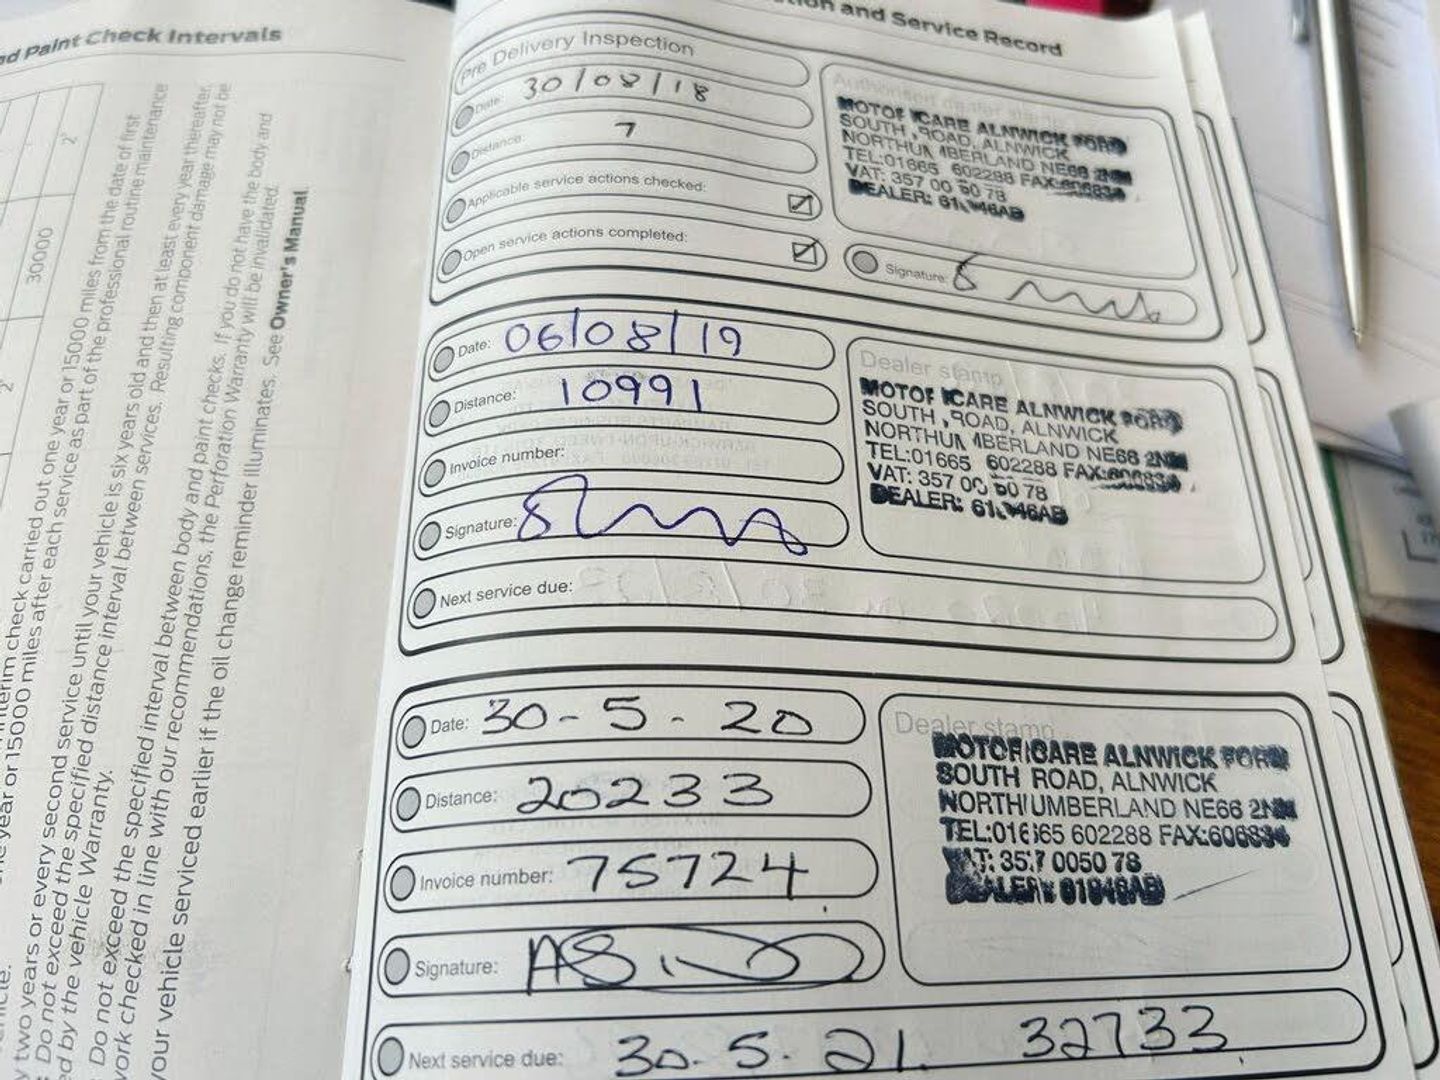 nd Paint Check Intervals
30000
2
2
interim check carried out one year or 15000 miles from the date of first
one year or 15000 miles after each service as part of the professional routine maintenance
y two years or every second service until your vehicle is six years old and then at least every year thereafter.
: Do not exceed the specified distance interval between services. Resulting component damage may not be
ed by the vehicle Warranty.
: Do not exceed the specified interval between body and paint checks. If you do not have the body and
work checked in line with our recommendations, the Perforation Warranty will be invalidated.
your vehicle serviced earlier if the oil change reminder illuminates. See Owner's Manual
tion and Service Record
Pre Delivery Inspection
Date: 30/08/18
Distance: 7
Applicable service actions checked:
Open service actions completed:
Authorised dealer stamp
MOTORCARE ALNWICK FORD
SOUTH ROAD, ALNWICK
NORTHUMBERLAND NE66 2NN
TEL:01665 602288 FAX:606834
VAT: 357 0050 78
DEALER: 61946AB
Signature:
Date: 06/08/19
Distance: 10991
Invoice number:
Signature:
Next service due:
Dealer stamp
MOTORCARE ALNWICK FORD
SOUTH ROAD, ALNWICK
NORTHUMBERLAND NE66 2NN
TEL:01665 602288 FAX:606834
VAT: 357 0050 78
DEALER: 61946AB
Date: 30-5-20
Distance: 20233
Invoice number: 75724
Signature:
Next service due: 30.5.21. 32733
Dealer stamp
MOTORCARE ALNWICK FORD
SOUTH ROAD, ALNWICK
NORTHUMBERLAND NE66 2NN
TEL:01665 602288 FAX:606834
VAT: 357 0050 78
DEALER: 61946AB